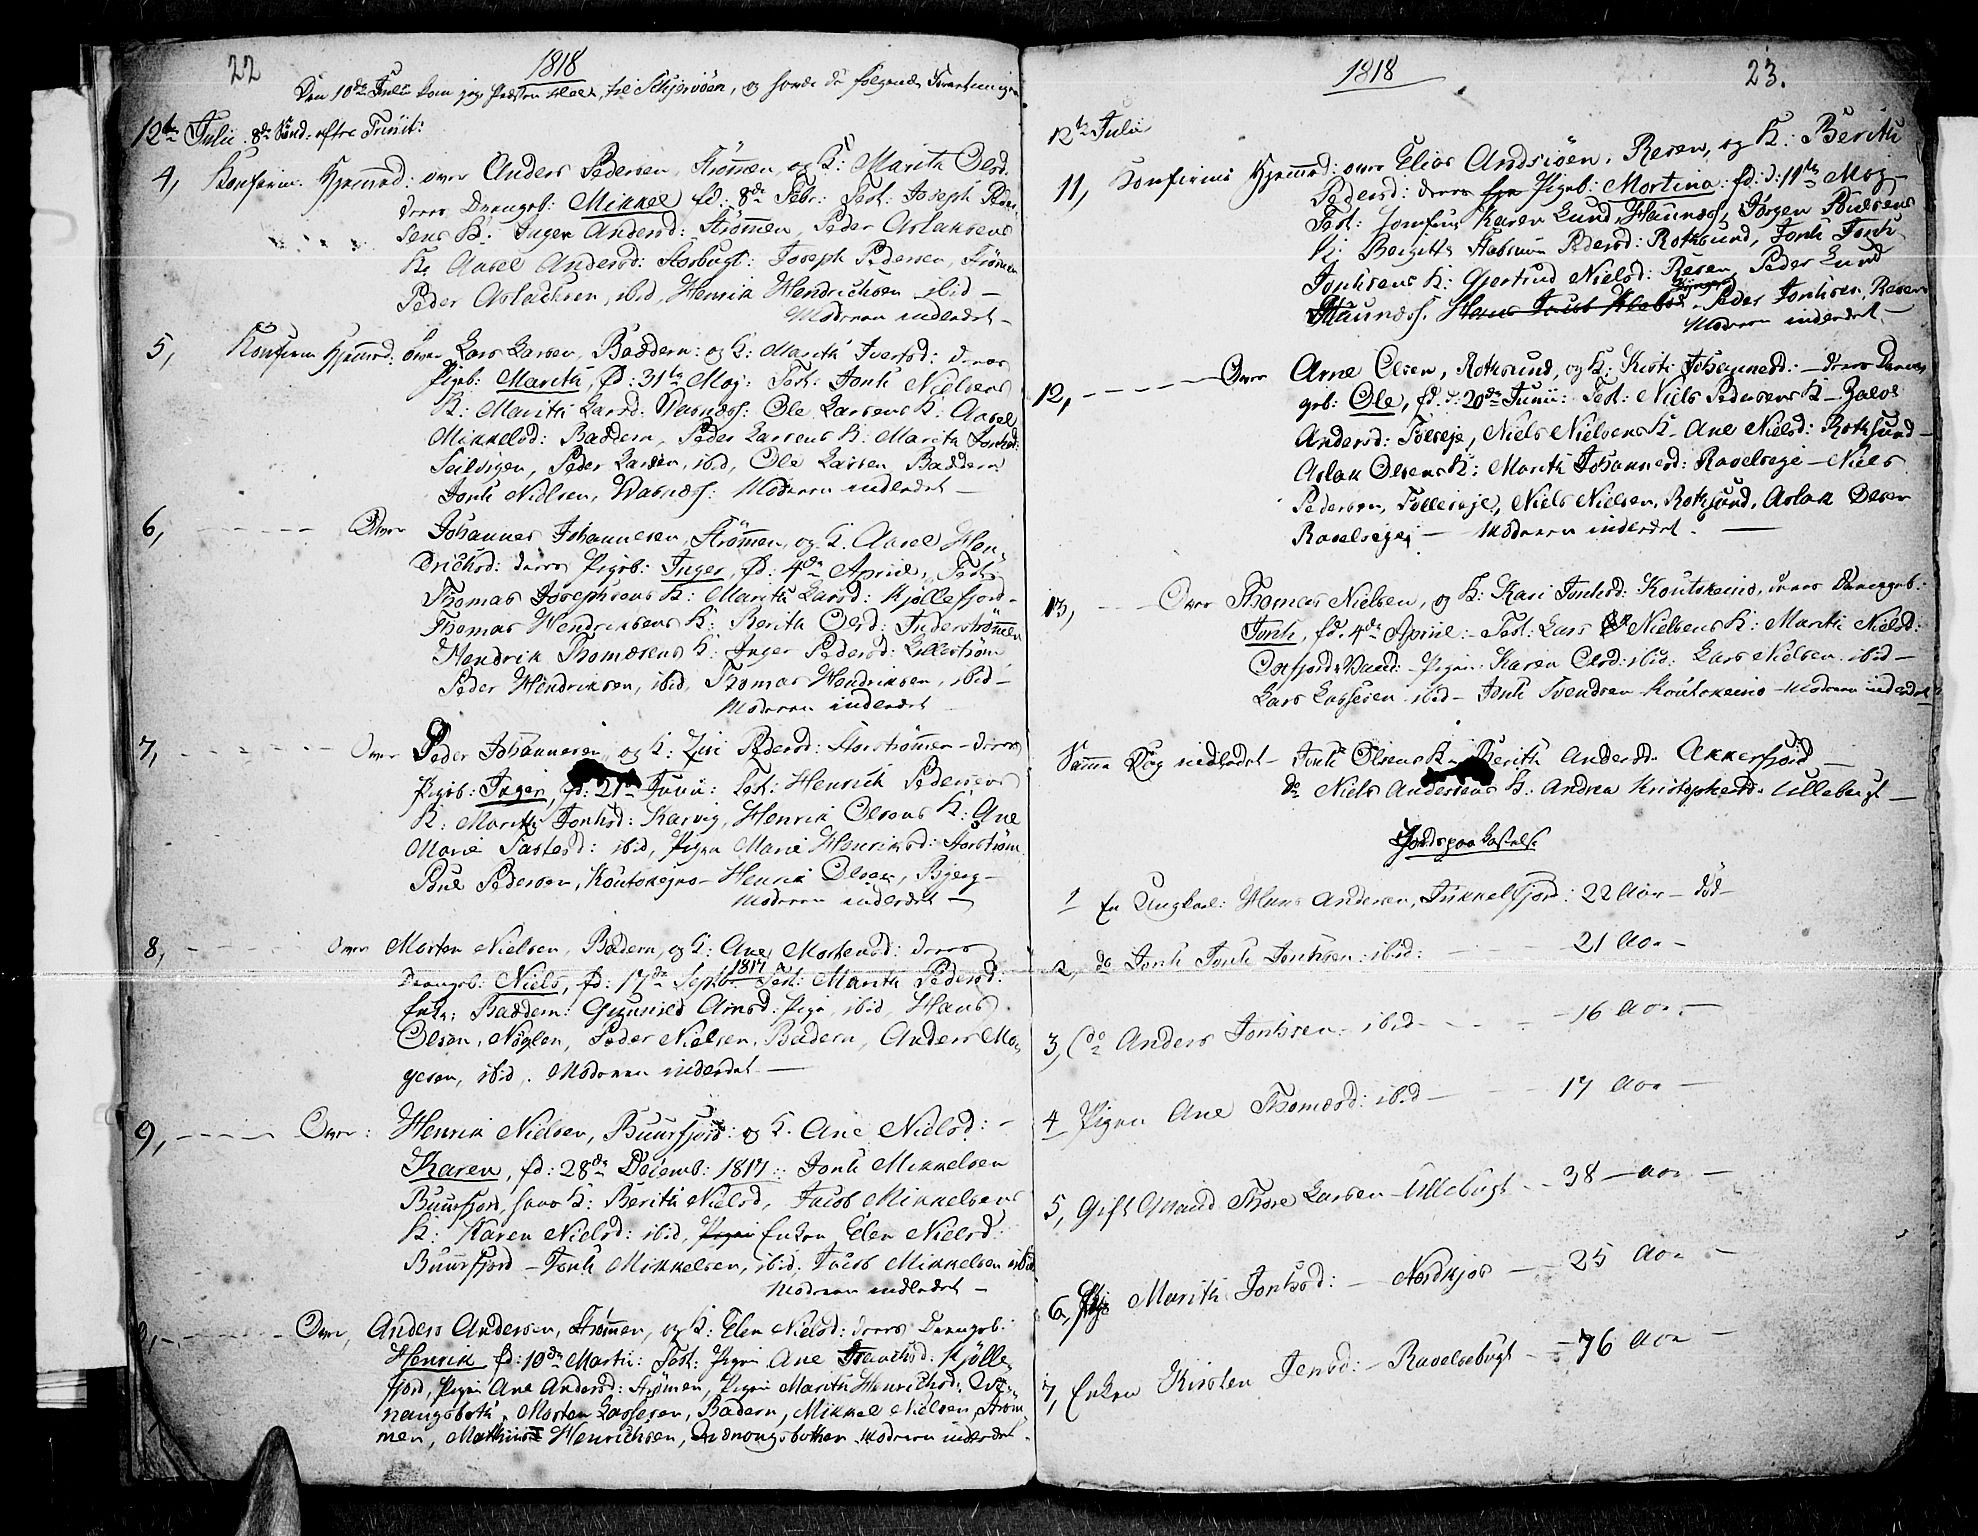 22
1818
Den 10de Julii kom jeg til Schjervöen, og havde de følgende Forretninger
12te Julii. 8de Sønd. efter Trinit:
4, Konfirm. Hjemmed: over Anders Pedersen, Strömen, og K: Marith Olsd.
deres Drengeb: Mikkel fd: 8de Febr: Test: Joseph Peder
sens K: Inger Andersd: Strömen, Peder Aslaksens
K: Aasel Andersd: Storbugt: Joseph Pedersen, Strömen
Peder Aslachsen, ibid, Henrik Hendrichsen ibid —
Moderen indledet —
5, Konfirm Hjemmed: over Lars Larsen, Baddern: og K: Marith Iversd: deres
Pigeb: Marith, fd: 31te Maj: Test: Jonh Nielsens
K: Marith Larsd: Ole Larsens K: Aasel
Mikkelsd: Baddern, Peder Larsens K: Marith Jonhsd:
Seilvigen, Peder Larsen, ibid, Ole Larsen Baddern
Jonh Nielsen, Moderen indledet —
6, — — — Over Johannes Johannesen, Strömmen, og K. Aasel Hen
drichsd: deres Pigeb: Inger, fd: 4de April, Test:
Thomas Josephsens K: Marith Larsd: Kjöllefjord —
Thomas Hendriksens K: Berith Olsd: Inderströmmen
Hendrik Thomæsens K: Inger Pedersd: Lilleström
Peder Hendriksen, ibid, Thomas Hendriksen, ibid —
Moderen indledet
7, — — — Over Peder Johannesen og K: Ziri Pedersd: Storströmmen — deres
Pigeb: Inger, fd: 21de Junii: Test: Henrich Pedersens
K: Marith Jonhsd: Karvig, Henrik Olsens K: Ane
Marie ibid, Pigen Marie Henriksd: Storström
Poul Pedersen, Koutokejno — Henrik Olsen, Bjerg —
Moderen indledet —
8, — — — Over Morten Nielsen, Badern, og K: Ane Mortensd: deres
Drengeb: Niels, fd: 17de Septbr 1817 Test: Marith Pedersd:
Enke: Baddern: Gunnild Arnsd: Pige, ibid, Hans
Olsen, Nöglen, Peder Nielsen, Badern, Anders Mo
gesen, ibid. Moderen indledet —
9, — — — Over: Henrik Nielsen, Buursfjord: og K. Ane Nielsd: —
Karen, fd: 28de Decemb: 1817: Jonh Mikkelsen
Buursfjord, K: Berith Nielsd, Jacob Mikkelsens
K: Karen Nielsd: ibid, Pigen Enken Elen Nielsd:
Buursfjord — Jonh Mikkelsen, ibid, Jacob Mikkelsen ibid
Moderen indledet —
— — — Over, Anders Andersen, Strømen, og K: Elen Nielsd: deres Drengeb:
Henrik fd: 10de Martii: Test: Pigen Ane Kjölle
fjord, Pigen Ane Andersd: Strömen, Pigen Marith Henrichsd: Qvæ
nangsboth, Morten Lassesen, Badern, Mikkel Nielsen, Ström
men, Mathias Henrichsen, Qvænangsbothen Moderen indledet.
1818
23.
12te Julii
11, Konfirm: Hjemmed: over Elias Andsiöen, Reven, og K: Berith
Pedersd: deres Pigeb: Mortina: fd: d: 11te Maj —
Test: Jomfru Karen Lund, Hauknæss, Jörgen Poulsens
K: Bergitte Pedersd: Rotsund, Jonh Jonh
Jonhsens K: Gjertrud Nielsd: Reven, Peder Lund
Hauknæss. Hans Jacob Peder Jonhsen, Reven
Moderen indledet —
12, — — — Over Arne Olsen, Rotsund, og K: Kirsti Johannesd: — deres Dren
geb: Ole, fd: d: 20de Junii: Test: Niels Pedersens K —
Andersd: Niels Nielsens K — Ane Nielsd: Rotsund —
Aslak Olsens K: Marith Johannesd: Ravelseje — Niels
Pedersen, Niels Nielsen, Rotsund, Aslak Olsen
Ravelsejei — Moderen indledet. —
13, — — Over Thomas Nielsen, og K: Kari Jonhsd: Koutokeino, deres Drengeb:
Jonh, fd. 4de Aprill: — Test: Lars Nielsens K: Marith Nielsd:
Oxfjord Vand: Pigen: Karen Olsd: ibid: Lars Nielsen ibid —
Lars Lassesen ibid — Jonh Svendsen Koutokeino — Moderen indledet
Samme Dag indledet — Jonh Olsens K — Berith Andersd. Akkerfjord —
do Niels Andersens K: Andrea Kristophersd. Ullebugt —
Jordspaakastelse
1 En Ungkarl: Hans Andersen, Jukkelfjord: 22 Aar — død —
2, do Jonh Jonh Jonhsen: ibid: — — — 21 Aar —
3, do Anders Jonhsen: ibid — — — 16 Aar —
4 Pigen Ane Thomæsd: ibid — — — 17 Aar —
5, Gift Mand Thore Larsen — Ullebugt — 38 — Aar —
6, Marith Jonhsd: — Nordkjos — 25 Aar —
7, Enken Kirsten Jensd: — Ravelsebugt — 76 Aar —